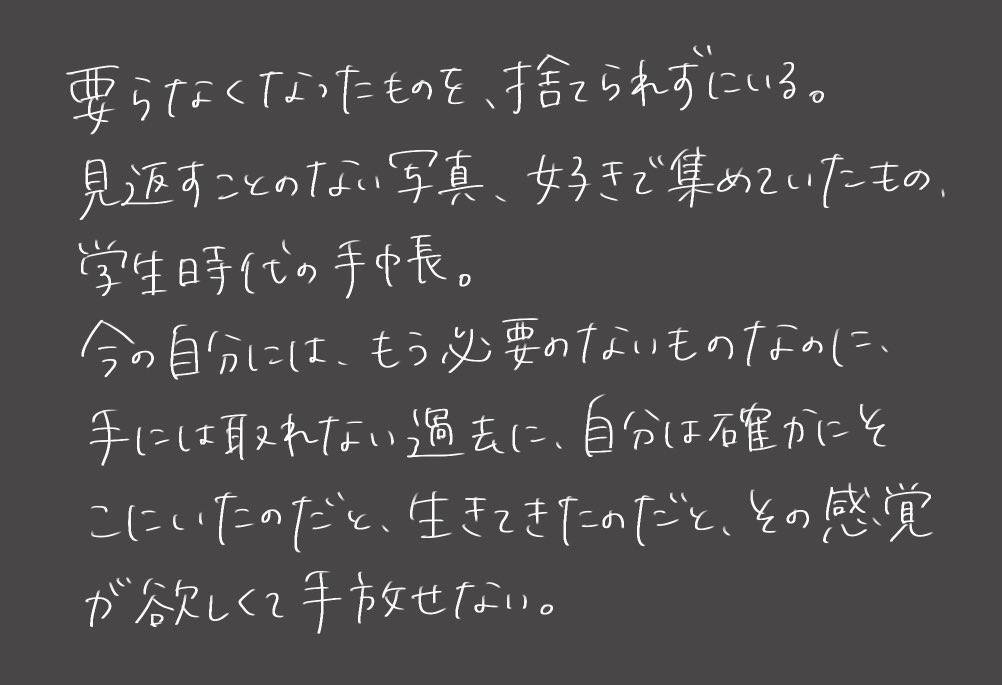 要らなくなったものを、捨てられずにいる。
見返すことのない写真、好きで集めていたもの、
学生時代の手帳。
今の自分には、もう必要のないものなのに、
手には取れない過去に、自分は確かにそ
こにいたのだと、生きてきたのだと、その感覚
が欲しくて手放せない。